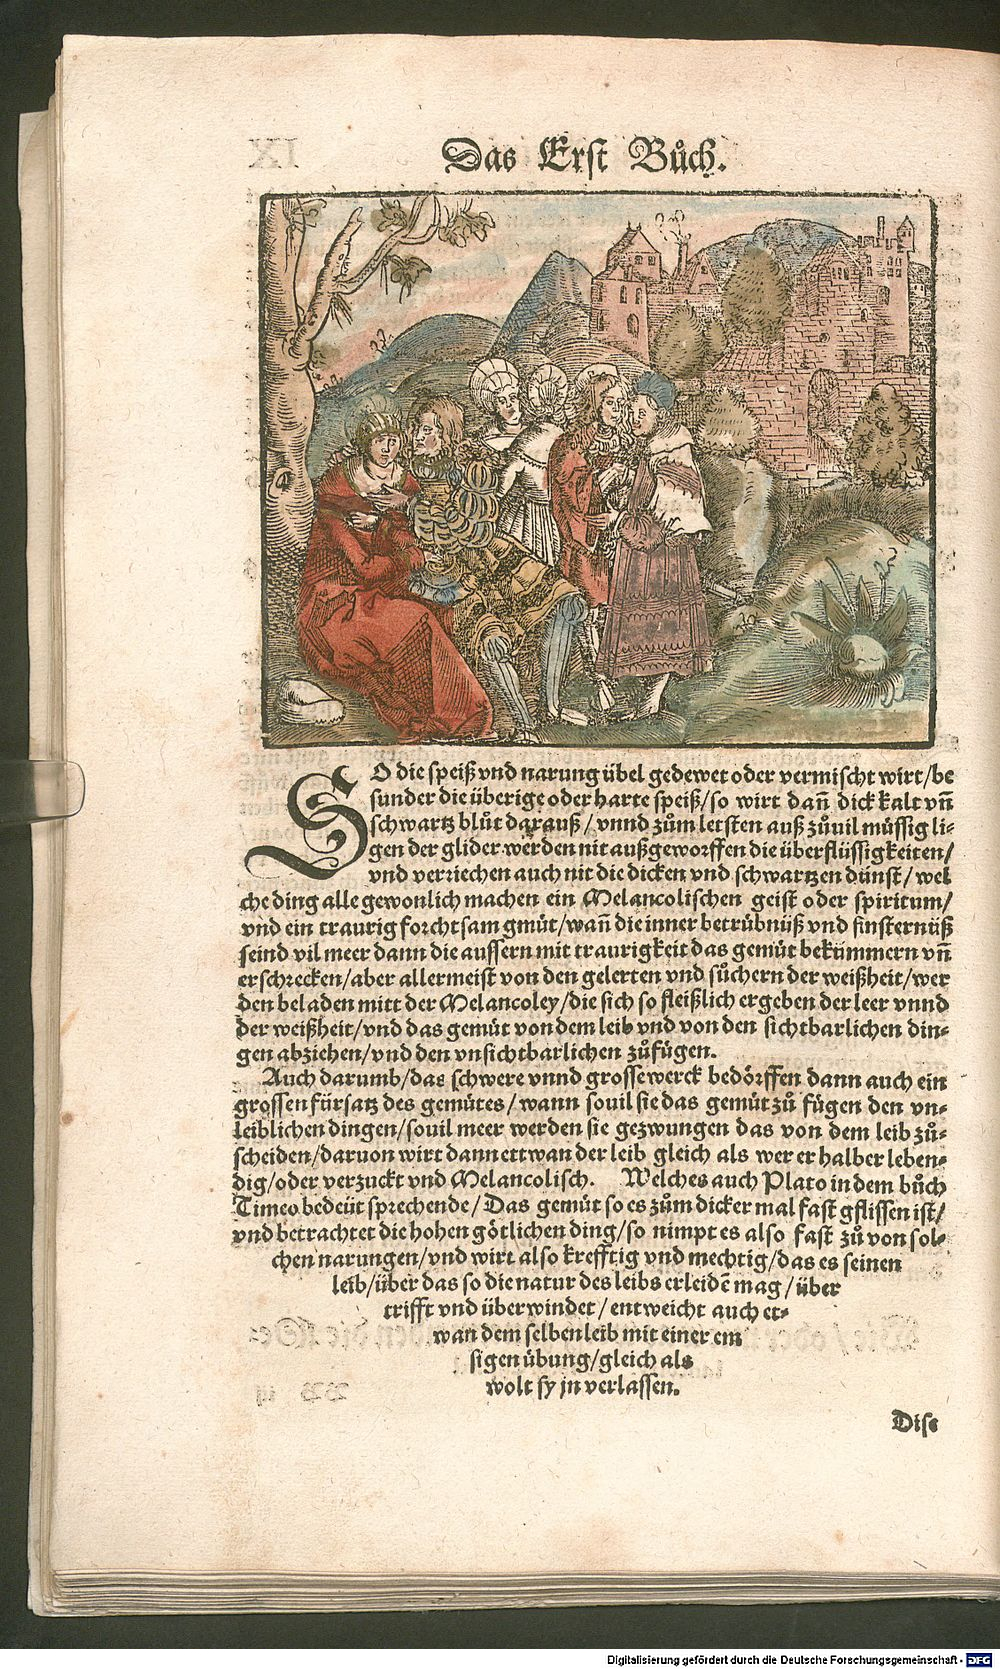 Das Erst Bůch.
SO die speiß vnd narung übel gedewet oder vermischt wirt/be
sunder die überige oder harte speiß/so wirt dañ dick kalt vñ
schwartz blůt darauß/vnnd zům letsten auß zůuil müssig li⸗
gen der glider werden nit außgeworffen die überflüssigkeiten/
vnd verriechen auch nit die dicken vnd schwartzen dünst/wel
che ding alle gewonlich machen ein Melancolischen geist oder spiritum/
vnd ein traurig forchtsam gmüt/wañ die inner betrübnüß vnd finsternüß
seind vil meer dann die aussern mit traurigkeit das gemüt bekümmern vñ
erschrecken/aber allermeist von den gelerten vnd sůchern der weißheit/wer
den beladen mitt der Melancoley/die sich so fleißlich ergeben der leer vnnd
der weißheit/vnd das gemüt von dem leib vnd von den sichtbarlichen din⸗
gen abziehen/vnd den vnsichtbarlichen zůfügen.
Auch darumb/das schwere vnnd grosse werck bedörffen dann auch ein
grossen fürsatz des gemütes/wann souil sie das gemüt zů fügen den vn⸗
leiblichen dingen/souil meer werden sie gezwungen das von dem leib zů⸗
scheiden/daruon wirt dann ettwan der leib gleich als wer er halber leben⸗
dig/oder verzuckt vnd Melancolisch. Welches auch Plato in dem bůch
Timeo bedeüt sprechende/Das gemüt so es zům dicker mal fast gflissen ist/
vnd betrachtet die hohen götlichen ding/so nimpt es also fast zů von sol⸗
chen narungen/vnd wirt also krefftig vnd mechtig/das es seinen
leib/über das so die natur des leibs erleidē mag/über
trifft vnd überwindet/entweicht auch et⸗
wan dem selben leib mit einer em
sigen übung/gleich als
wolt sy jn verlassen.
Dise
Digitalisierung gefördert durch die Deutsche Forschungsgemeinschaft - DFG